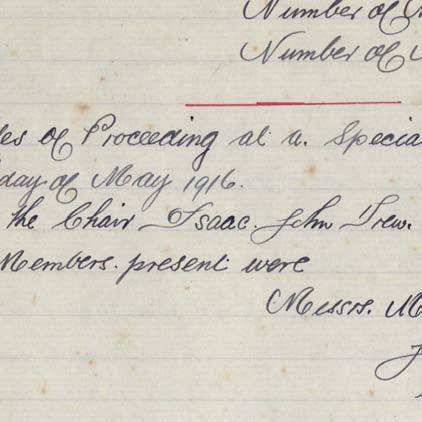 Number of
Number of
es of Proceeding at a Specia
day of May 1916.
the Chair Isaac. John Trew.
Members. present were
Messrs. M